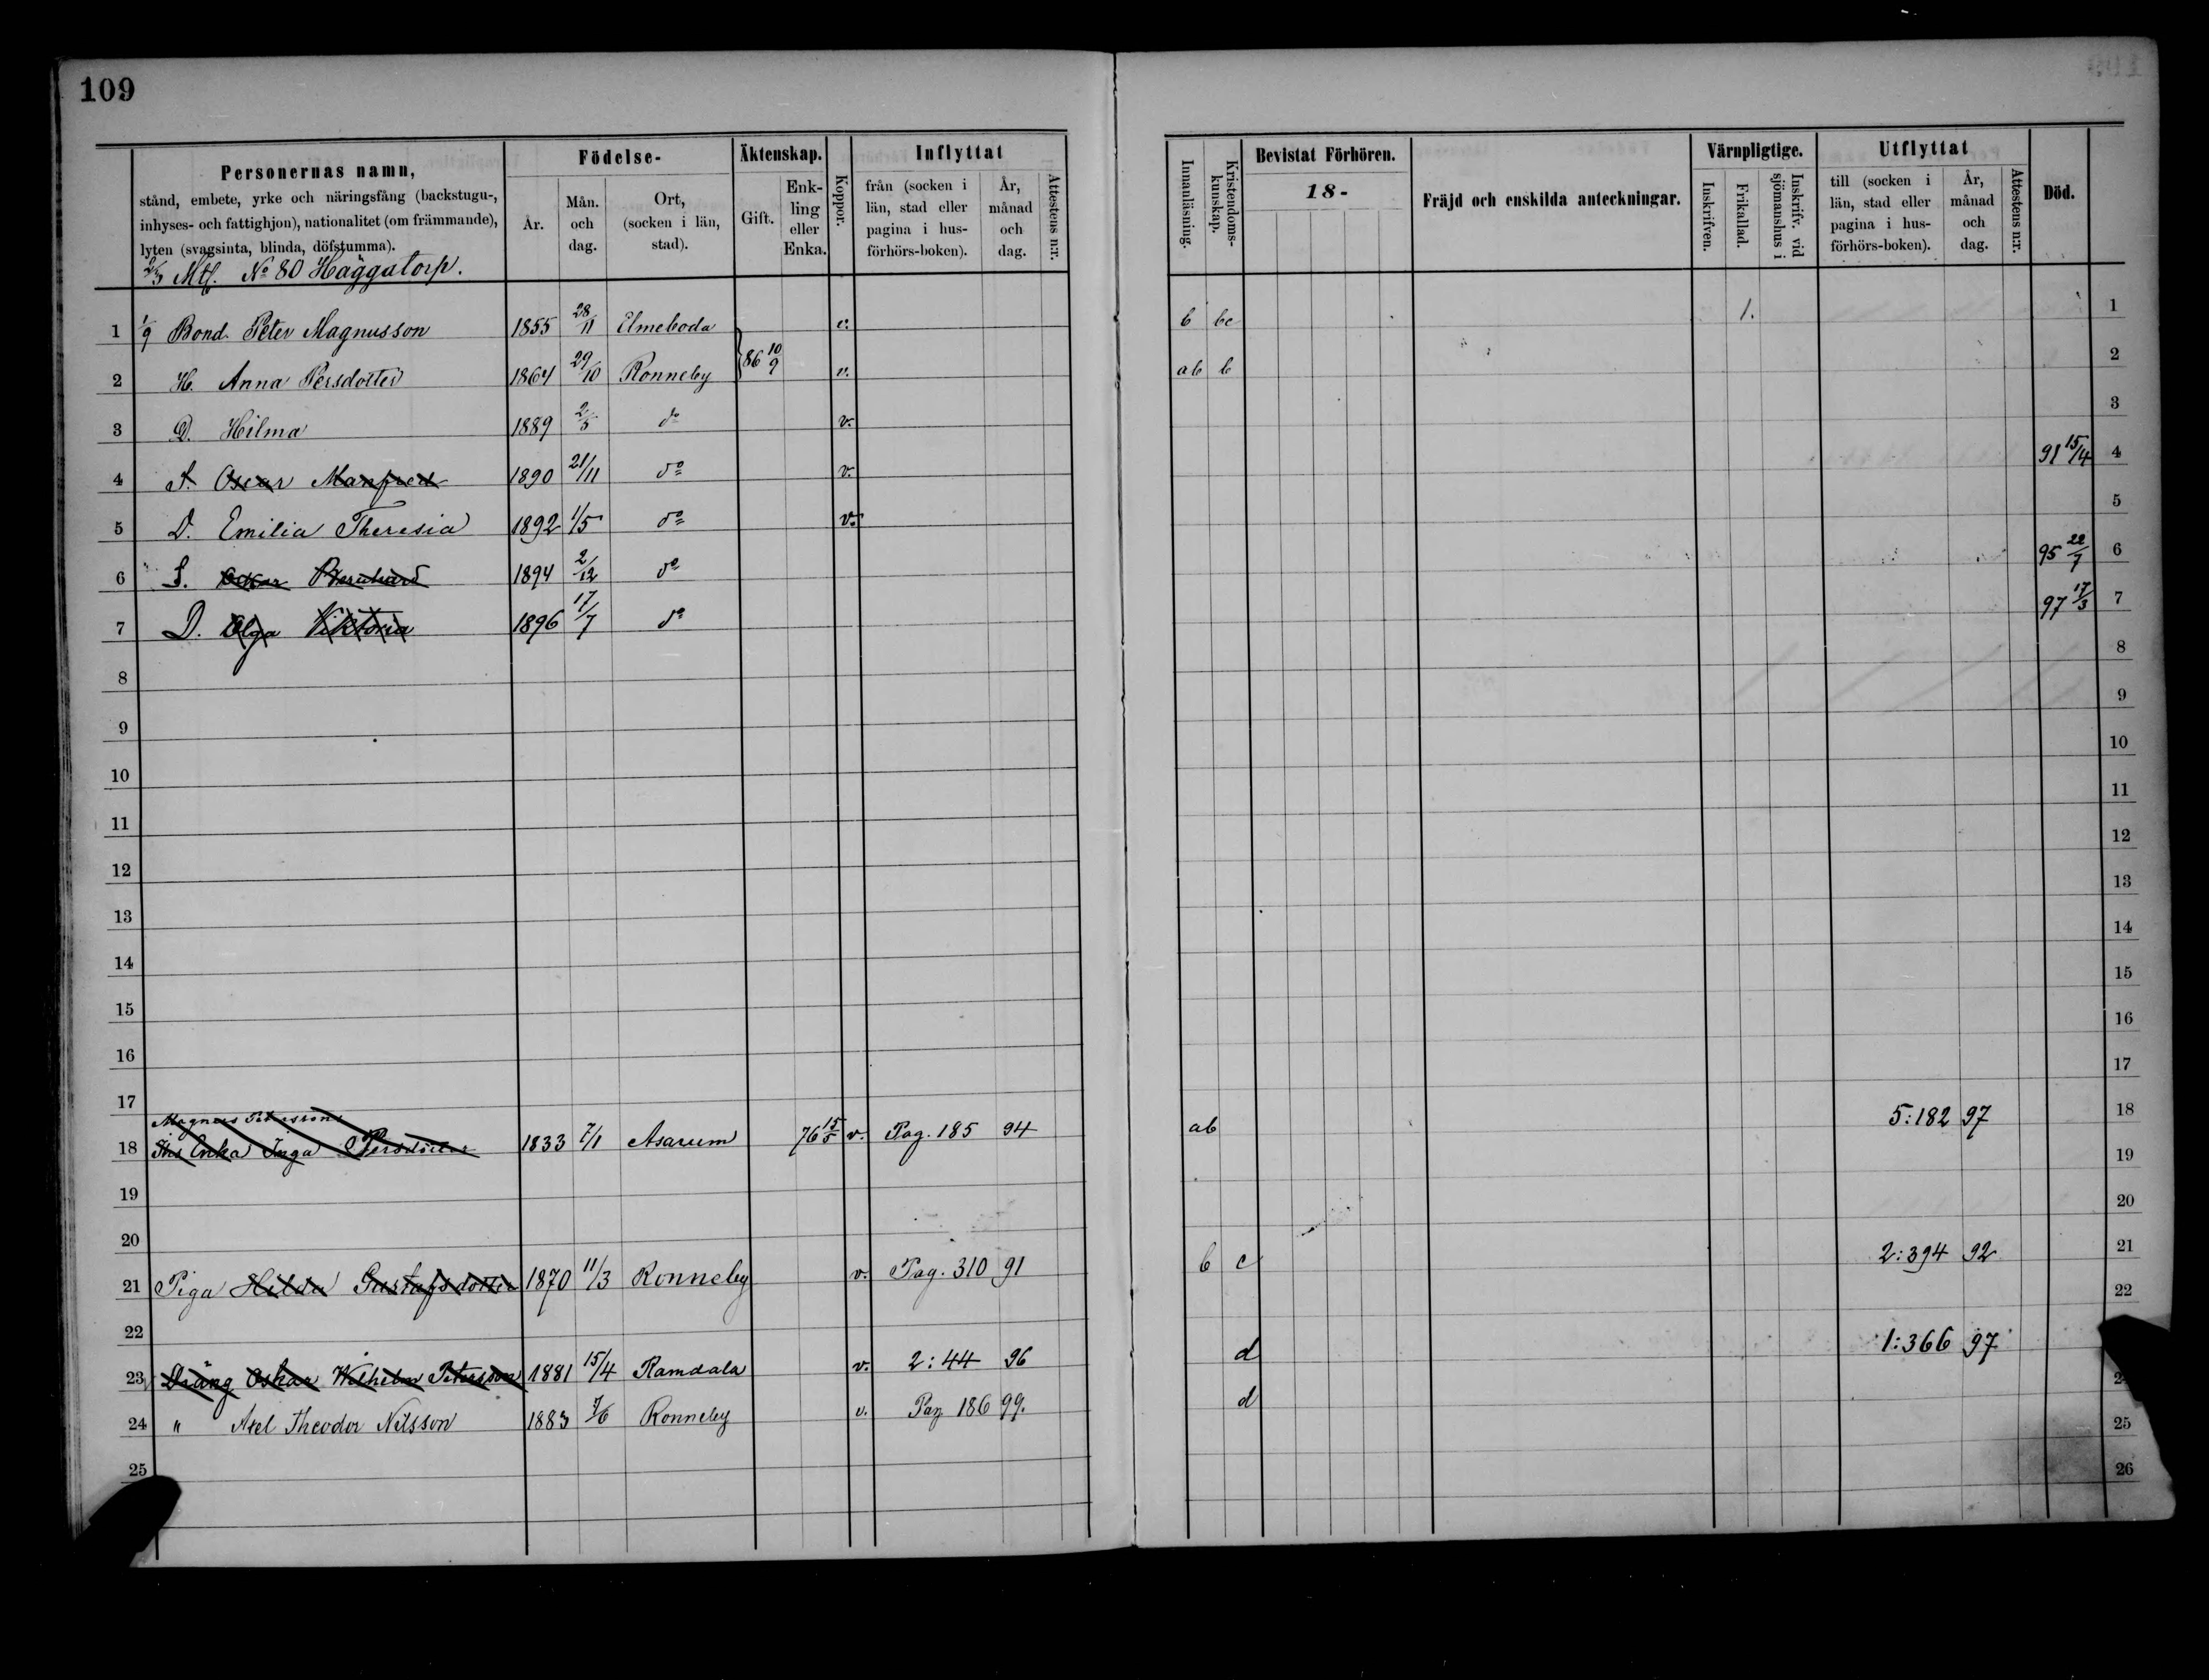 109
Personernas namn,
stånd, embete, yrke och näringsfång (backstugu-,
inhyses- och fattighjon), nationalitet (om främmande),
lyten (svagsinta, blinda, döfstumma).
Födelse-
År.
Mån. och dag.
Ort, (socken i län, stad).
Äktenskap.
Gift.
Enk- ling eller Enka.
Koppor.
Inflyttat
från (socken i län, stad eller pagina i hus- förhörs-boken).
År, månad och dag.
Attestens n:r.
Innanläsning.
Kristendoms- kunskap.
Bevistat Förhören.
18-
Fräjd och enskilda anteckningar.
Värnpligtige.
Inskrifven.
Frikallad.
Inskrifv. vid sjömanshus i
Utflyttat
till (socken i län, stad eller pagina i hus- förhörs-boken).
År, månad och dag.
Attestens n:r.
Död.
Mtl. No 80 Häggatorp.
1 1/9 Bond. Peter Magnusson 1855 28/11 Elmeboda v. b bc 1. 1
2 H. Anna Persdotter 1864 29/10 Ronneby 86 10/9 v. ab b 2
3 D. Hilma 1889 2/5 do v. 3
4 S. Oscar Manfred 1890 21/11 do v. 91 15/4 4
5 D. Emilia Theresia 1892 1/5 do v. 5
6 S. Oskar Bernhard 1894 2/12 do 95 22/7 6
7 D. Olga Viktoria 1896 17/7 do 97 17/3 7
8 8
9 9
10 10
11 11
12 12
13 13
14 14
15 15
16 16
17 17
Magnus Peterssons
18 Enka Inga Persdotter 1833 7/1 Asarum 76 15/5 v. Pag. 185 94 ab 5:182 97 18
19 19
20 20
21 Piga Hilda Gustafsdotter 1870 11/3 Ronneby v. Pag. 310 91 b c 2:394 92 21
22 22
23 Dräng Oskar Wilhelm Petersson 1881 15/4 Ramdala v. 2:44 96 d 1:366 97
24 " Axel Theodor Nilsson 1883 7/6 Ronneby v. Pag 186 99. d 24
25 25
26